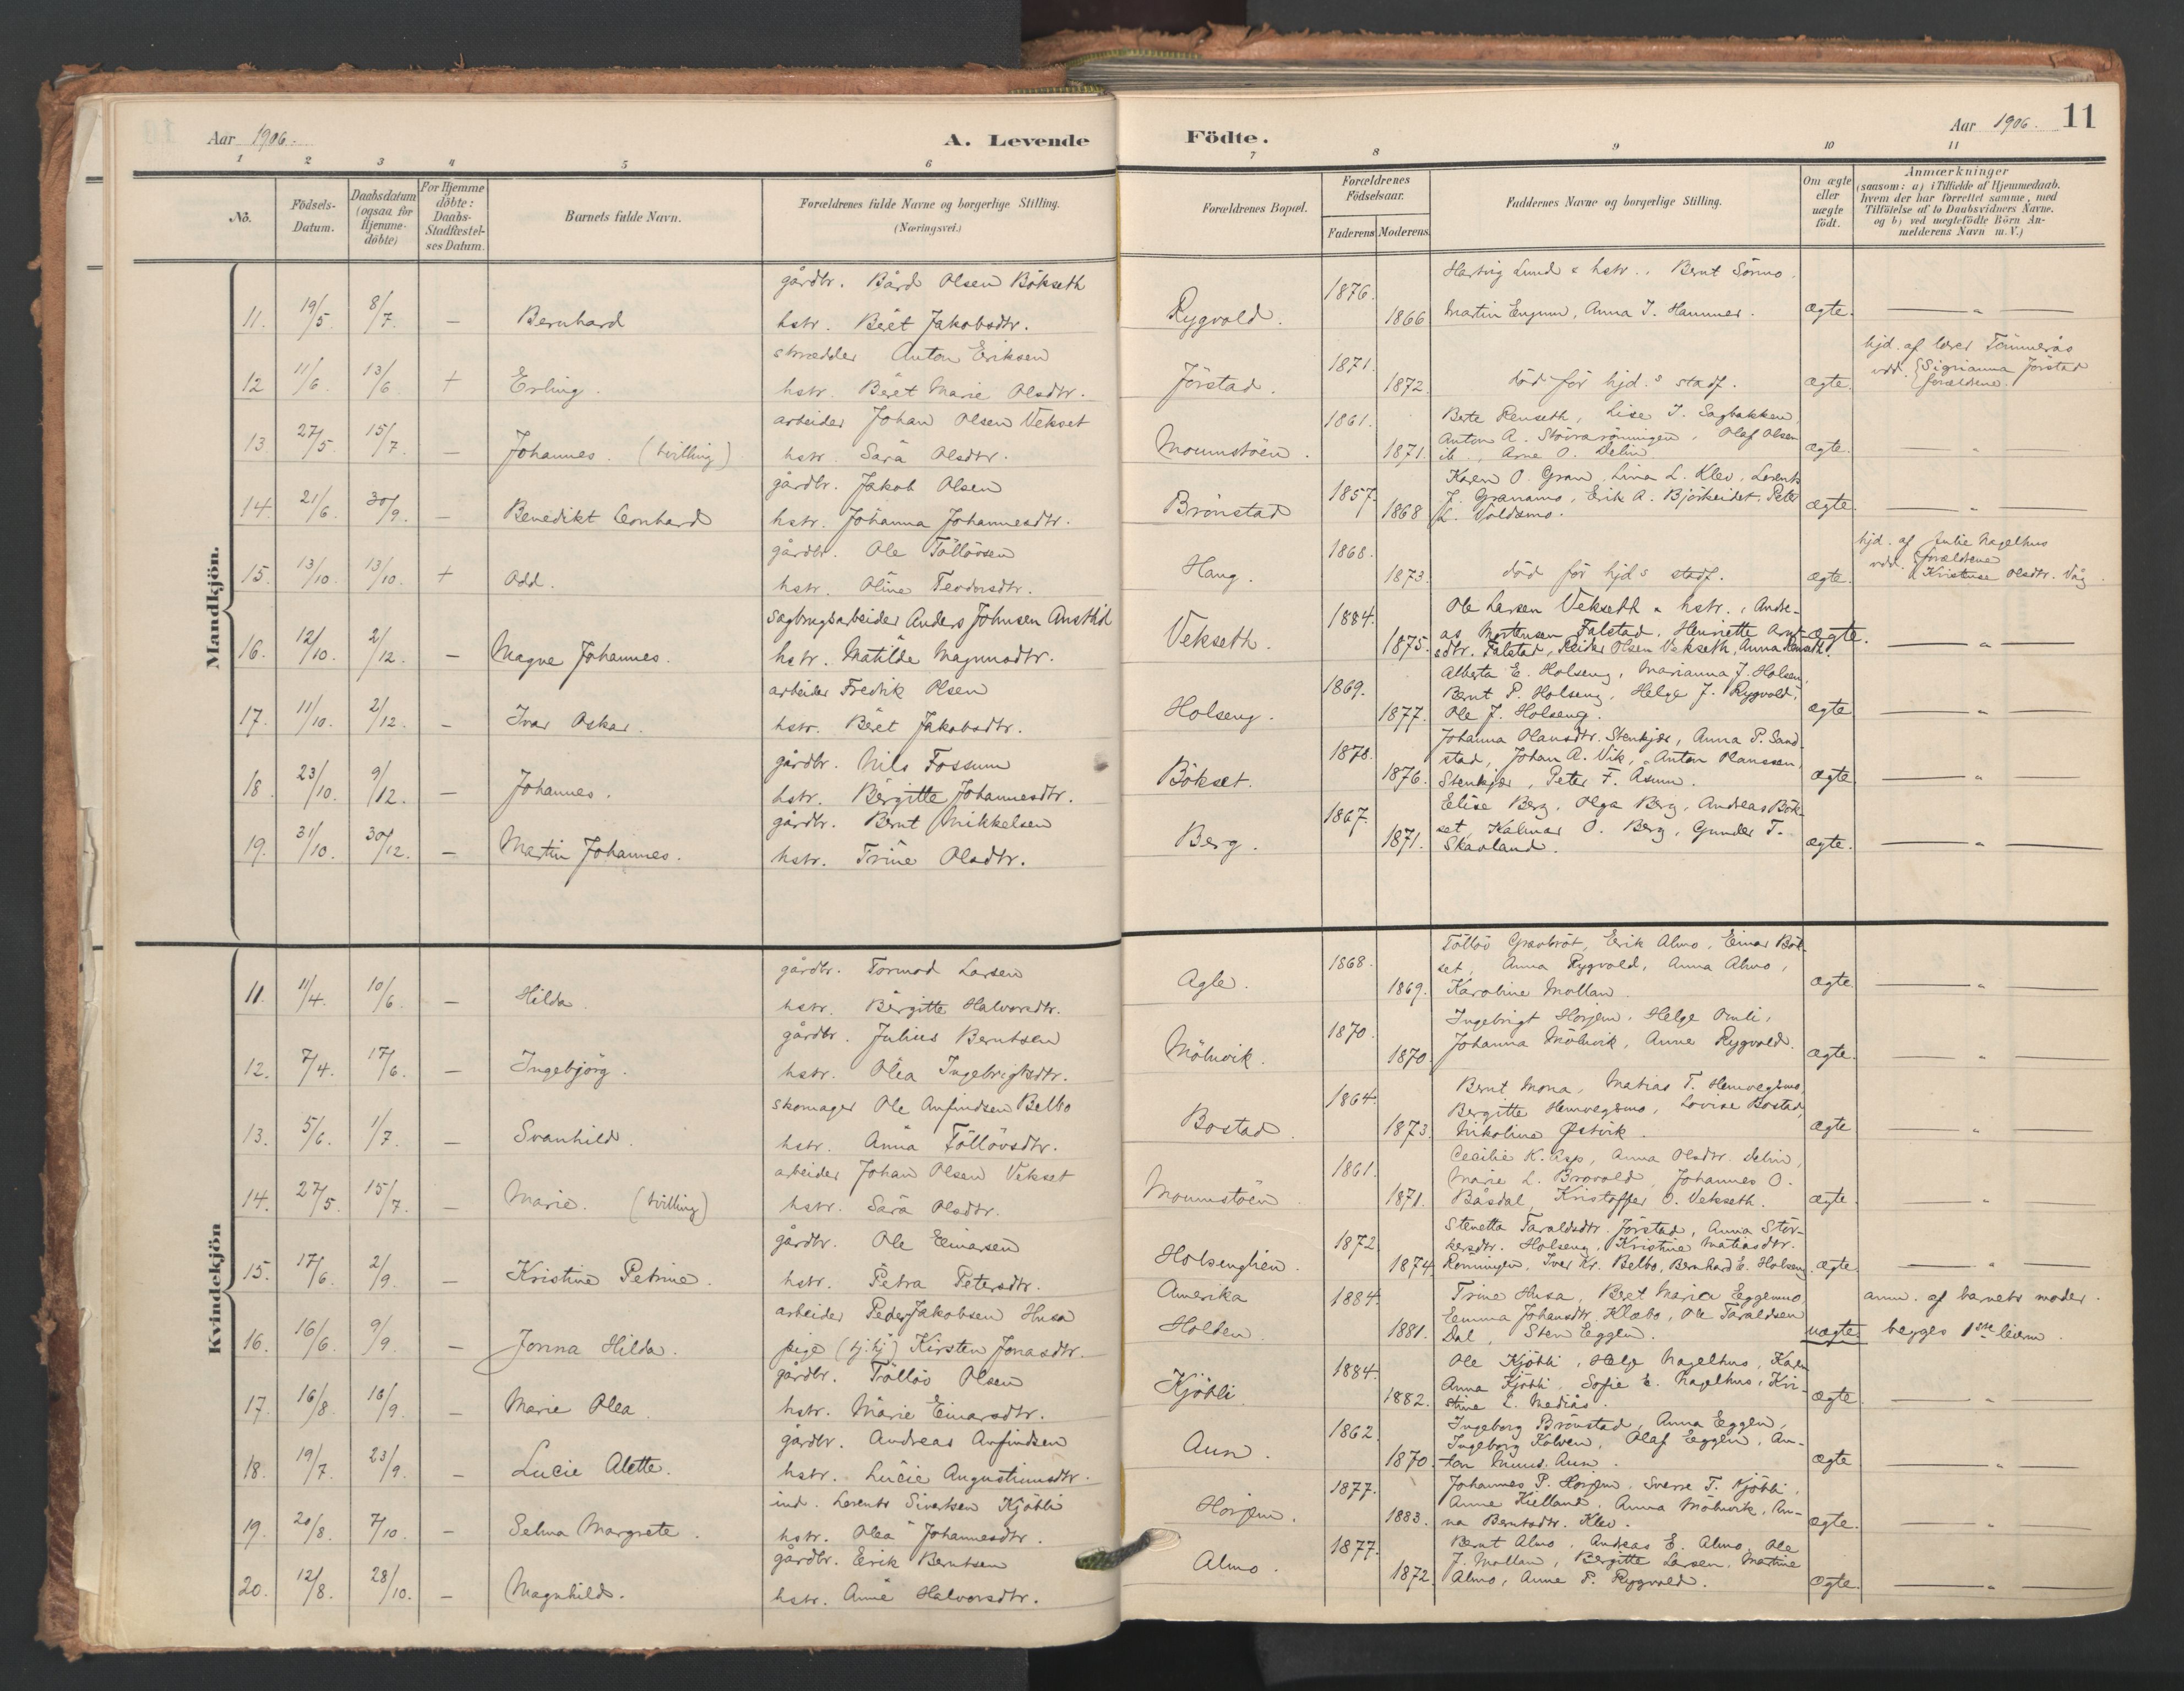 Aar 1906.
A. Levende
Födte.
Aar 1906.
11
1 2 3 4 5 6 7 8 9 10 11
No.
Födsels-Datum.
Daabsdatum (ogsaa for Hjemme-döbte)
For Hjemme döbte: Daabs-Stadfæstel-ses Datum.
Barnets fulde Navn.
Forældrenes fulde Navne og borgerlige Stilling.
(Næringsvei.)
Forældrenes Bopæl.
Forældrenes Födselsaar.
Faderens Moderens
Faddernes Navne og borgerlige Stilling.
Om ægte eller uægte födt.
Anmærkninger
(saasom: a) i Tilfælde af Hjemmedaab.
hvem der har forrettet samme, med
Tilföielse af to Daabsvidners Navne.
og b) ved uægtefödte Börn An-
melderens Navn m. V.)
Mandkjön.
gårdbr. Bård Olsen Bökseth 1876. Hartvig Lund & hstr., Bernt Sörmo,
11. 19/5 8/7. — Bernhard hstr. Beret Jakobsdtr. Rygvold. 1866 Martin Engum, Anna J. Hammer. ægte. — " —
skrædder Anton Eriksen 1871. hjd. af lærer Tömmerås
12 11/6. 13/6 + Erling. hstr. Beret Marie Olsdtr. Jörstad. 1872. död för hjd.s stadf. ægte. vdd. Sigrianna Jörstad
forældrene.
arbeider Johan Olsen Vekset 1861. Berte Renseth, Lise J. Sagbakken,
13. 27/5 15/7. — Johannes. (tvilling) hstr. Sara Olsdtr. Moumstöen. 1871. Anton A. Störraröningen, Olaf Olsen
ib., Arne O. Delin. ægte. — " —
gårdbr. Jakob Olsen 1857. Karen O. Gran, Lina L. Klev, Lorents
14. 21/6. 30/9. — Benedikt Leonhard hstr. Johanna Johannesdtr. Brönstad 1868 J. Granamo, Erik A. Björkeidet, Peter
L. Voldsmo. ægte. — " —
gårdbr. Ole Töllövsen 1868. hjd. af Julie Nagelhus
15. 13/10. 13/10. + Odd. hstr. Oline Teodorsdtr. Haug. 1873. död för hjd.s stadf. ægte. vdd. forældrene
Kristense Olsdtr. Våg.
Sagbrugsarbeider Anders Johnsen 1884. Ole Larsen Vekseth & hstr., Andre-
16. 12/10. 2/12. — Magne Johannes. hstr. Matilde Magnusdtr. Vekseth. 1875. as Mortensen Falstad, Henriette Arnt- ægte.
sdtr. Falstad, Peider Olsen Vekseth, Anna Renseth. — " —
arbeider Fredrik Olsen 1869. Alberta E. Holseng, Marianna J. Holsen,
17. 11/10. 2/12. — Ivar Oskar. hstr. Beret Jakobsdtr. Holseng. 1877. Bernt P. Holseng, Helge J. Rygvold,
Ole J. Holseng. ægte — " —
gårdbr. Nils Fossum 1870. Johanna Olausdtr. Stenkjær, Anna P. Sand-
18. 23/10. 9/12. — Johannes. hstr. Bergitte Johannesdtr. Bökset. 1876. stad, Johan A. Vik, Anton Olaussen,
Stenkjær, Peter F. Asum. ægte — " —
gårdbr. Bernt Mikkelsen 1867. Elise Berg, Olga Berg, Andreas Bök-
19. 31/10. 30/12. — Martin Johannes. hstr. Trine Olsdtr. Berg. 1871. set, Kalmar O. Berg, Gunder T.
Skavland. ægte. — " —
Kvindekjön
gårdbr. Tormod Larsen 1868. Töllöv Gravbröt, Erik Almo, Einar Bök-
11. 11/4. 10/6. — Hilda. hstr. Bergitte Halvorsdtr. Agle. 1869. set, Anna Rygvold, Anna Almo,
Karoline Mollan. ægte. — " —
gårdbr. Julius Berntsen 1870. Ingebrigt Horjem, Helge Omli,
12. 7/4. 17/6. — Ingebjörg. hstr. Olea Ingebrigtsdtr. Mölnvik. 1870. Johanna Mölnvik, Anna Rygvold. ægte. — " —
skomager Ole Anfindsen Belbo 1864. Bernt Mona, Matias T. Hemvegsmo,
13. 5/6. 1/7. — Svanhild. hstr. Anna Töllövsdtr. Bostad. 1873. Bergitte Hemvegsmo, Lovise Bostad,
Nikoline Østvik. ægte — " —
arbeider Johan Olsen Vekset 1861. Cecilie K. Asp, Anna Olsdtr. Delin,
14. 27/5. 15/7. — Marie. (tvilling) hstr. Sara Olsdtr. Moumstöen. 1871. Marie L. Brovold, Johannes O.
Båsdal, Kristoffer O. Vekseth. ægte. — " —
gårdbr. Ole Einarsen 1872. Stenetta Taraldsdtr. Jörstad, Anna Stör-
15. 17/6. 2/9. — Kristine Petrine. hstr. Petra Petersdtr. Holsenglien. 1874. kersdtr. Holseng, Kristine Matiasdtr.
Röningen, Iver Kr. Belbo, Bernhard E. Holseng. ægte. — " —
arbeider Peder Jakobsen Husa Amerika 1884. Trine Husa, Beret Maria Eggenmo, anm. af barnets moder.
16. 16/6. 9/9. — Jonna Hilda. pige (tj.hj) Kirsten Jonasdtr. Holden. 1881. Emma Johansdtr. Klæbo, Ole Taraldsen
Dal, Sten Eggen. uægte. begges 1ste leierm.
gårdbr. Töllöv Olsen 1884. Ole Kjöbli, Helge Nagelhus, Karen
17. 16/8. 16/9. — Marie Olea. hstr. Marie Einarsdtr. Kjöbli 1882. Anna Kjöbli, Sofie E. Nagelhus, Kri-
stine L. Mediås. ægte. — " —
gårdbr. Andreas Anfindsen 1862. Ingeborg Brönstad, Anna Eggen,
18. 19/7. 23/9. — Lucie Alette. hstr. Lucie Augustinusdtr. Aun. 1870. Ingeborg Kolven, Olaf Eggen, An-
ton Aun. ægte — " —
ind. Lorents Sivertsen Kjöbli 1877. Johannes P. Horjem, Sverre T. Kjöbli,
19. 20/8. 7/10. — Selma Margrete. hstr. Olea Johannesdtr. Horjem. 1883. Anne Kielland, Anna Mölnvik, An-
na Berntsdtr. Klev. ægte. — " —
gårdbr. Erik Berntsen 1877. Bernt Almo, Andreas E. Almo, Ole
20. 12/8. 28/10. — Magnhild. hstr. Anne Halvorsdtr. Almo. 1872. J. Mollan, Bergitte Larsen, Martine
Almo, Anne P. Rygvold. ægte. — " —